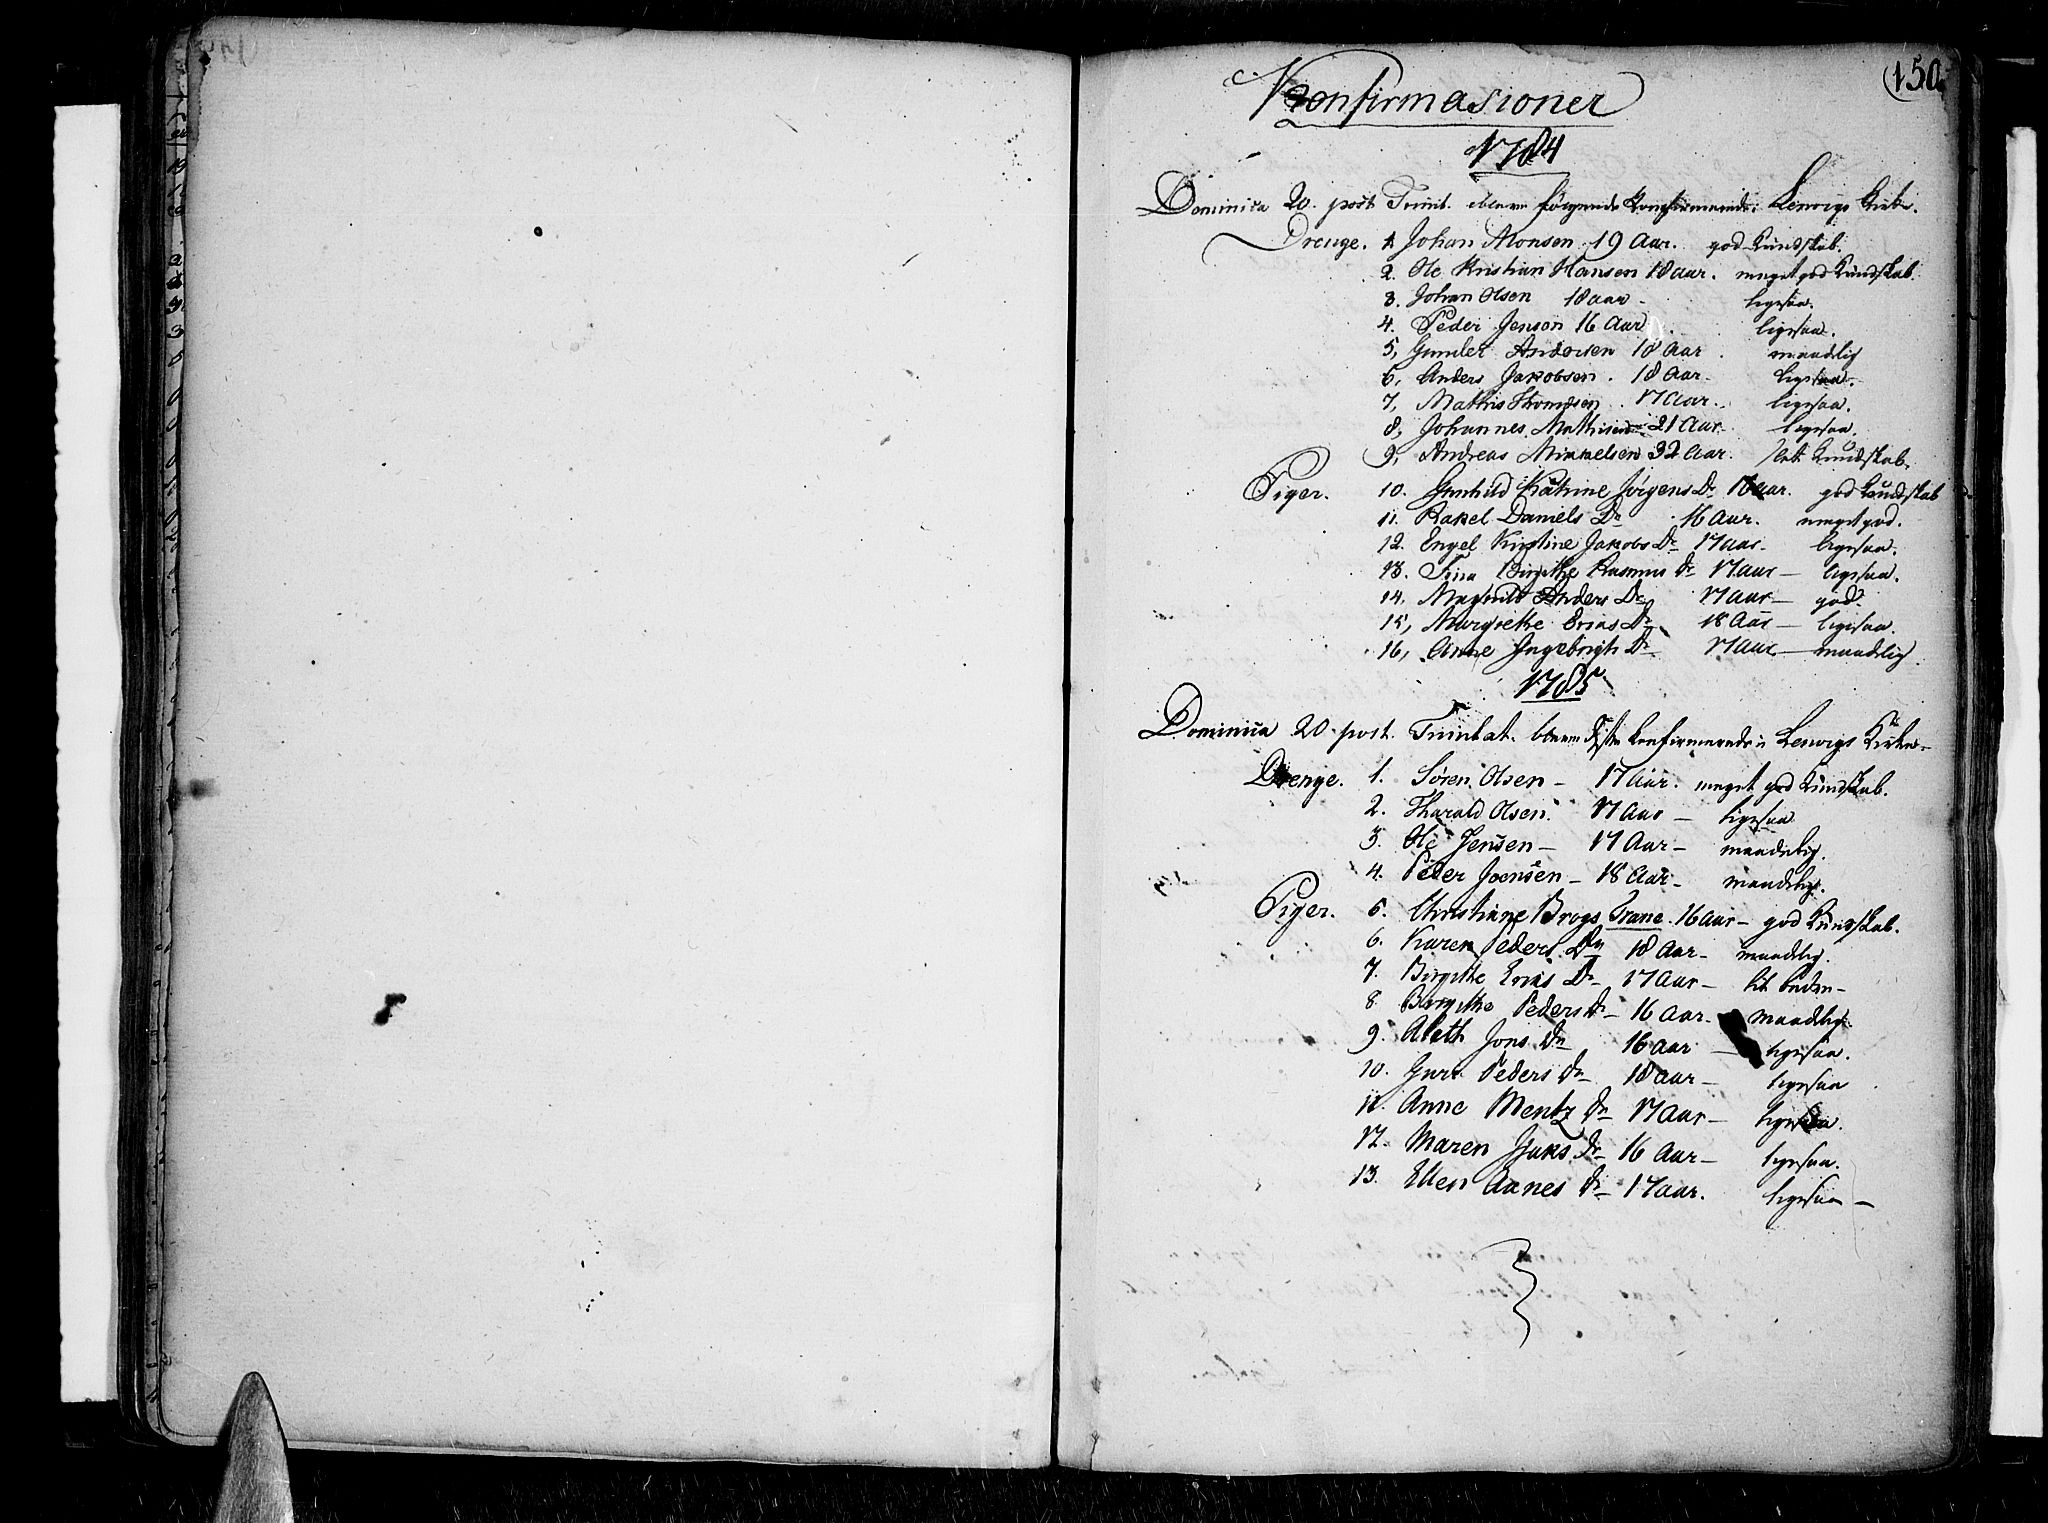 150.
Konfirmasioner
1784
Dominica 20. post Trinit. følgende konfirmerede i Kirke.
Drenge. 1 Johan Monsen 19 Aar. god Kundskab.
2. Ole Kristian Hansen 18 aar. meget god Kundskab.
3. Johan Olsen 18 aar - ligesaa.
4. Peder Jenson 16 Aar. ligesaa.
5, Andersen 18 Aar. maadelig
6, Anders Jakobsen. 18 Aar- ligesaa.
7, Mathis Thomesen. 17 Aar. ligesaa.
8, Johannes Mathisen 21 Aar. ligesaa.
9, Andreas Mikkelsen 32 Aar. slet Kundskab.
Piger. 10. Gunhild Katrine Jørgens Dr. 16 aar. god Kundskab
11. Rakel Daniels Dr 16 Aar. meget god.
12. Engel Kirstine Jakobs Dr 17 aar- ligesaa.
13. Birgithe Rasmus Dr 17 aar - ligesaa.
14. Anders Dr 17 aar - god.
15, Margrethe Eriks Dr 18 Aar - ligesaa.
16, Anne Ingebrigt Dr 17 aar - maadelig.
1785
Dominica 20. post. Trinitat. konfirmerede i Kirke-
Drenge. 1. Sören Olsen - 17 Aar. meget god Kundskab.
2. Tharald Olsen. 17 Aar - ligesaa
3. Ole Jensen - 17 Aar - maadelig.
4. Peder Joensen - 18 Aar - maadelig.
Piger. 5. Christianne Brogs Trane. 16 aar - god Kundskab.
6. Karen Peders Dr 18 Aar - maadelig.
7. Birgithe Eriks Dr - 17 Aar - lit bedre -
8 Birgithe Peders Dr - 16 Aar - maadelig.
9. Aleth Jons Dr 16 aar - ligesaa.
10. Guru Peders Dr - 18 aar - ligesaa
11. Anne Mentz Dr 17 Aar - ligesaa.
12. Maren Isaks Dr - 16 Aar - ligesaa.
13. Ellen Aanes Dr - 17 aar. ligesaa -